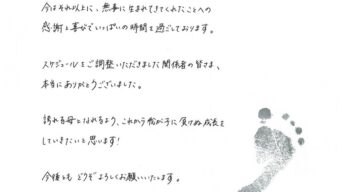 今はそれ以上に、無事に生まれてきてくれたことへの
感謝と喜びでいっぱいの時間を過ごしております。
スケジュールをご調整いただきました関係者の皆さま、
本当にありがとうございました。
誇れる母となれるよう、これから我が子に負けぬ成長を
していきたいと思います!
今後とも どうぞよろしくお願いいたします。